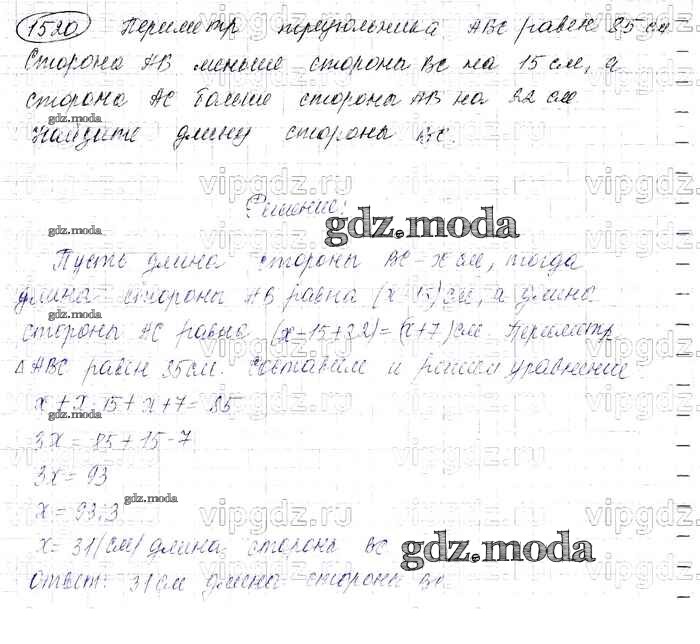 1520 Периметр треугольника ABC равен 85 см
Сторона AB меньше стороны BC на 15 см, а
сторона AC больше стороны AB на 22 см
Найдите длину стороны BC.
gdz.moda
vipgdz.ru vipgdz.ru vipgdz.ru
gdz.moda
Решение:
gdz.moda
Пусть длина стороны BC - x см, тогда
длина стороны AB равна (x-15) см, а длина
gdz.moda
vipgdz.ru vipgdz.ru vipgdz.ru
стороны AC равна (x-15+22)=(x+7) см. Периметр
△ABC равен 85 см. Составим и решим уравнение
x+x-15+x+7=85
gdz.moda
vipgdz.ru vipgdz.ru vipgdz.ru
3x = 85+15-7
3x = 93
gdz.moda
x = 93:3
vipgdz.ru vipgdz.ru vipgdz.ru
x = 31 (см) длина стороны BC
gdz.moda
Ответ: 31 см длина стороны BC
vipgdz.ru vipgdz.ru vipgdz.ru